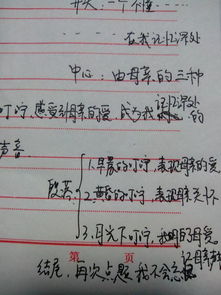 开头：一个不懂……
……在我记忆深处
中心：由母亲的三种
叮咛，感受到母亲的爱，成为我记忆深处的
声音。
段落
1.早晨的叮咛，表现母亲的爱
2.黄昏的叮咛，表现母亲关怀
3.月光下叮咛，的母爱。
第 页
结尾：再次点题 我不会忘记母亲